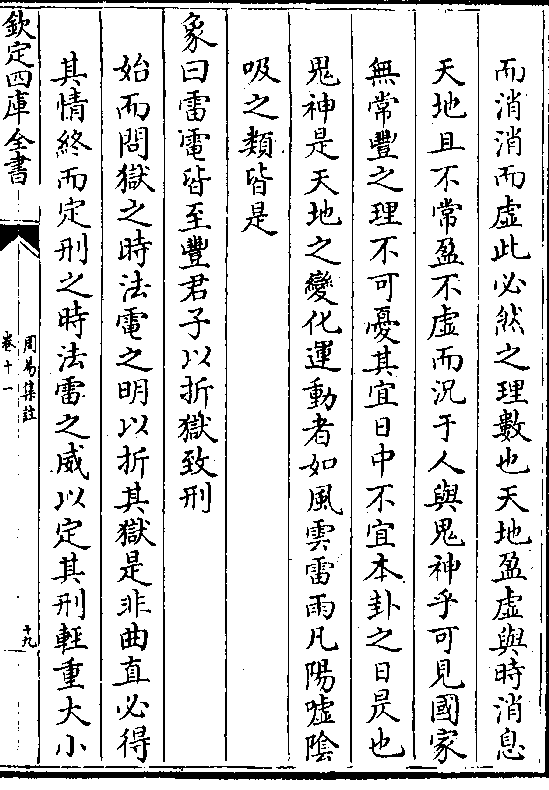 而消消而虛此必然之理數也天地盈虛與時消息
天地且不常盈不虛而況于人與鬼神乎可見國家
無常豐之理不可憂其宜日中不宜本卦之日昃也
鬼神是天地之變化運動者如風雲雷雨凡陽噓陰
吸之類皆是
象曰雷電皆至豐君子以折獄致刑
始而問獄之時法電之明以折其獄是非曲直必得
其情終而定刑之時法雷之威以定其刑輕重大小
欽定四庫全書
周易集註
卷十一
十九